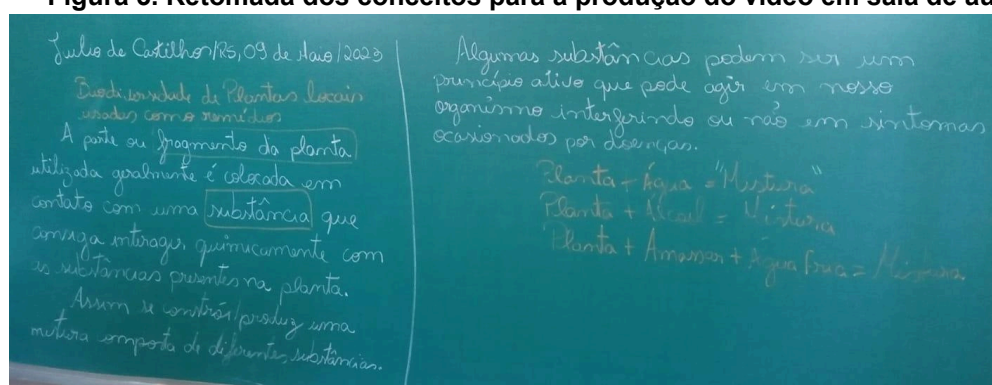 Figura 6. Retomada dos conceitos para a produção do vídeo em sala de au
Julio de Castilhos/RS, 09 de Maio/2023
Biodiversidade de Plantas locais
usadas como remédios
A parte ou fragmento da planta
utilizada geralmente é colocada em
contato com uma substância que
consiga interagir quimicamente com
as substâncias presentes na planta.
Assim se constrói/produz uma
mistura composta de diferentes substâncias.
Algumas substâncias podem ser um
princípio ativo que pode agir em nosso
organismo interferindo ou não em sintomas
ocasionados por doenças.
Planta + Água = "Mistura"
Planta + Álcool = Mistura
Planta + Amassar + Água fria = Mistura